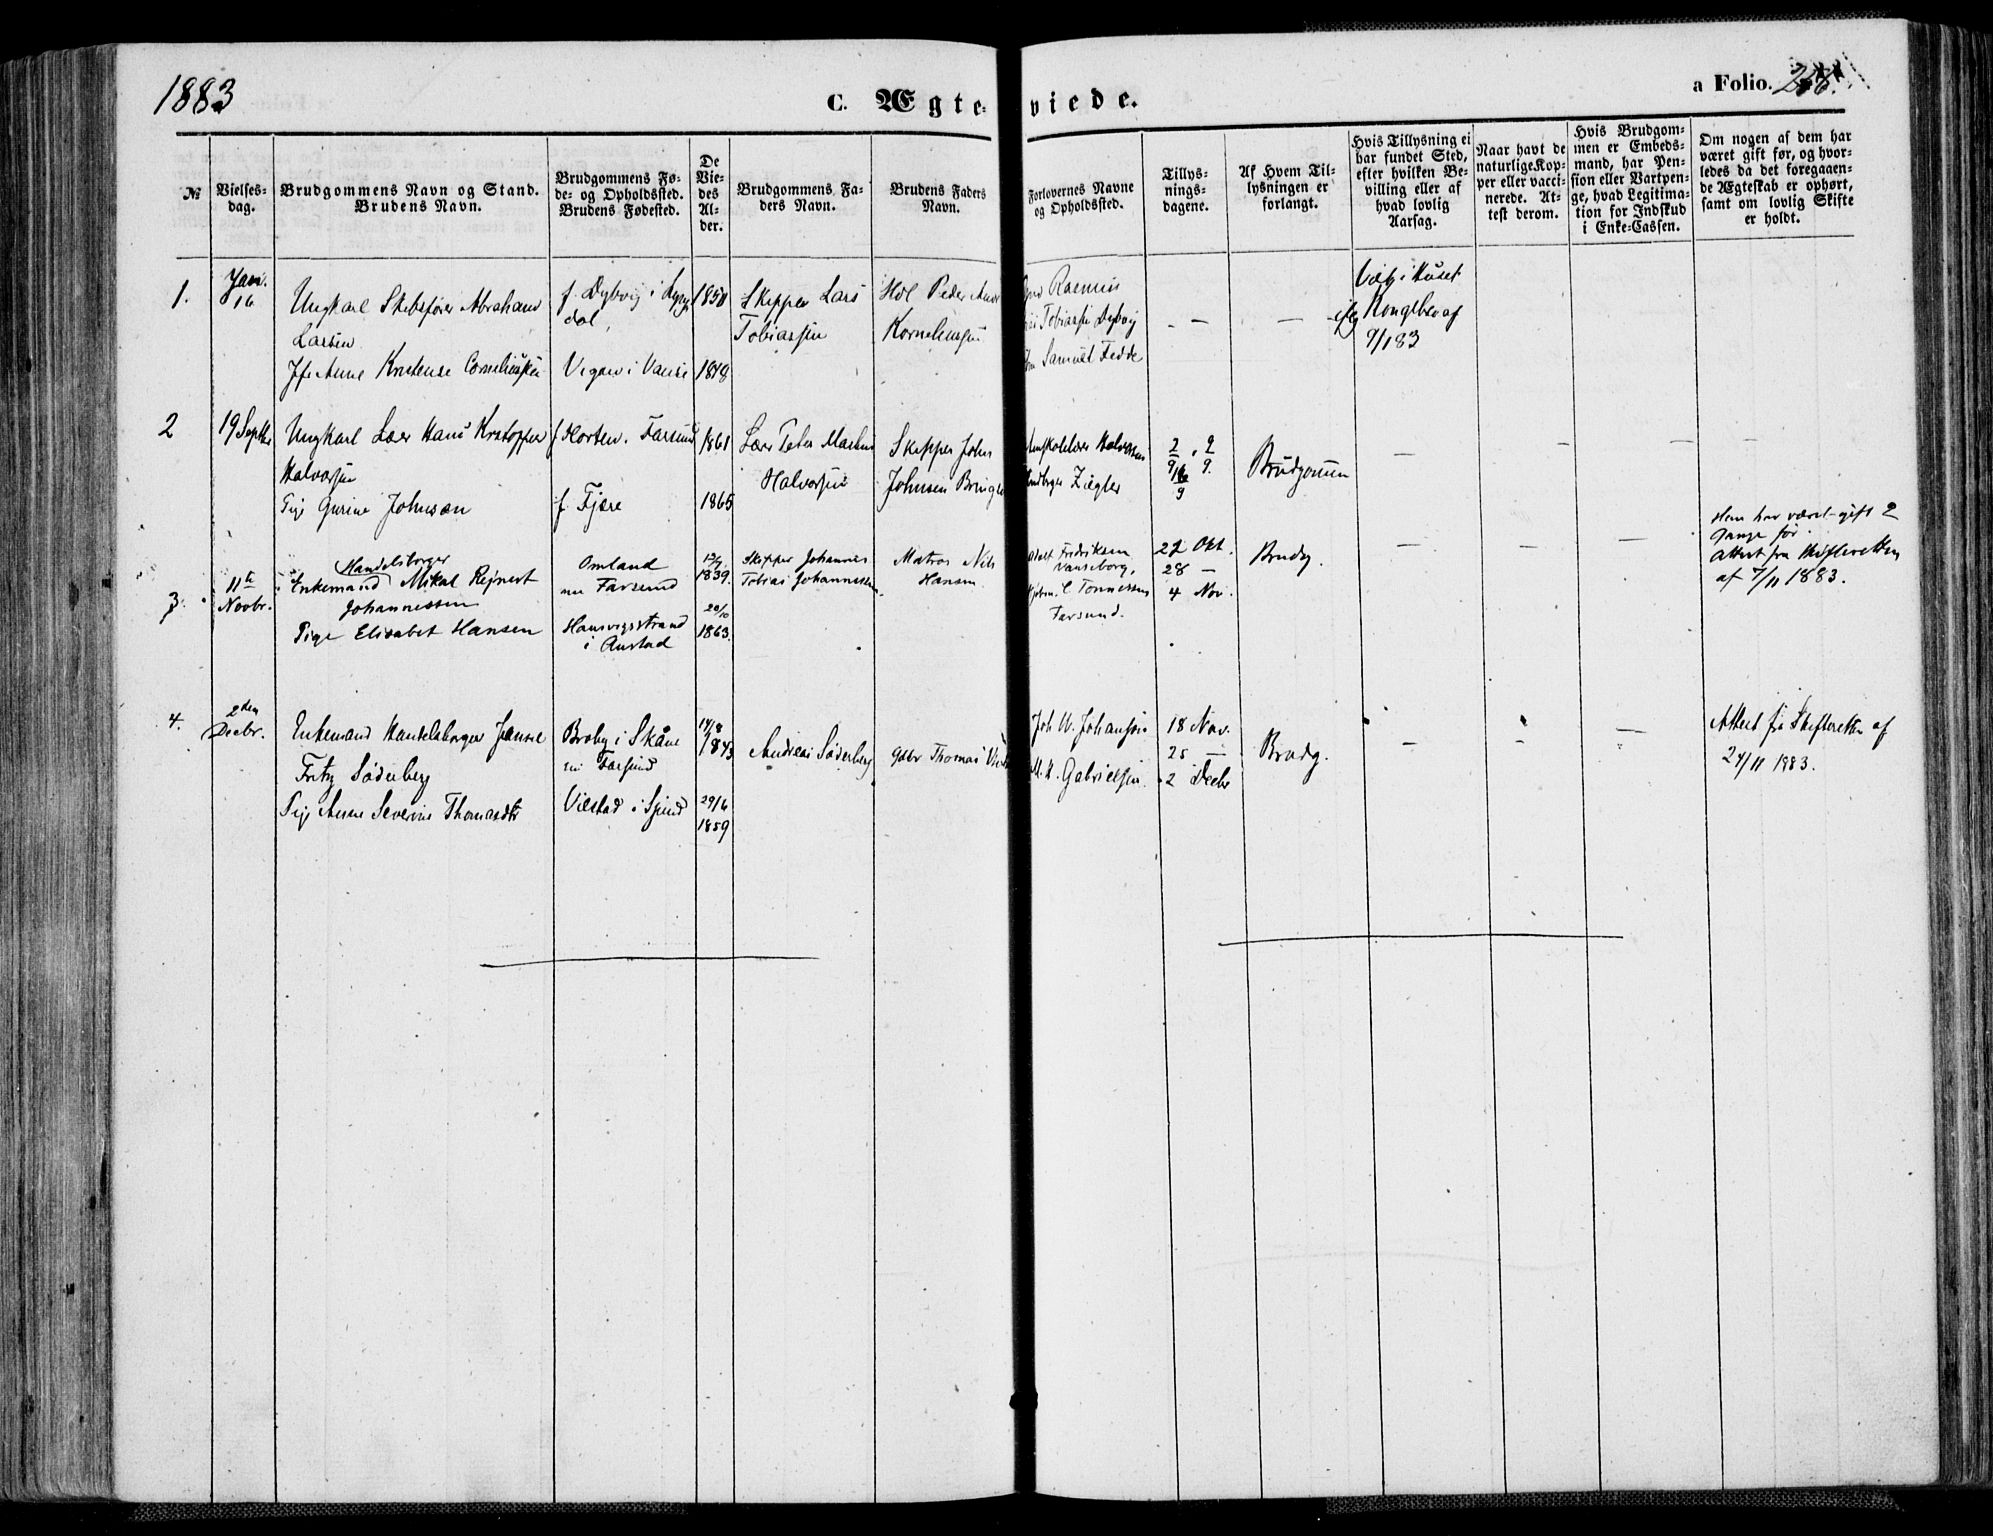 1883
C. Ægte-
viede.
a Folio.
№
Vielses-
dag.
Brudgommens Navn og Stand.
Brudens Navn.
Brudgommens Fø-
de- og Opholdssted.
Brudens Fødested.
De
Vie-
des
Al-
der.
Brudgommens Fa-
ders Navn.
Brudens Faders
Navn.
Forlovernes Navne
og Opholdssted.
Tillys-
nings-
dagene.
Af Hvem Til-
lysningen er
forlangt.
Hvis Tillysning ei
har fundet Sted,
efter hvilken Be-
villing eller af
hvad lovlig
Aarsag.
Naar havt de
naturlige Kop-
per eller vacci-
nerede. At-
test derom.
Hvis Brudgom-
men er Embeds-
mand, har Pen-
sion eller Vartpen-
ge, hvad Legitima-
tion for Indskud
i Enke-Cassen.
Om nogen af dem har
været gift før, og hvor-
ledes da det foregaaen-
de Ægteskab er ophørt,
samt om lovlig Skifte
er holdt.
1.
Jan.
16
Ungkarl Skibsfører Abraham
Larsen
Anne
f. Dybvig i
dal
Vigan i Vanse
1850
1848
Skipper Lars
Tobiassen
Peder
Kornelius
Rasmus
Tobiass Dybvig
Samuel Fedde
Viet i Huset
Kongebrev af
9/1 83
2
19 Septbr
Ungkarl Lærer Hans Kristoffer
Halvorsen
Pige Gurine Johnsen
f Horten. Farsund
f. Fjære
1861
1865
Lærer Peter Markus
Halvorsen
Skipper John
Johnsen
Halvorsen
Ziegler
2/9 . 9/9.
16/9
Brudgommen
3.
11te
Novbr.
Handelsborger
Enkemand Mikal Rejnert
Johannessen
Pige Elisabet Hansen
Omland
nu Farsund
Hansvigsstrand
i Austad
1839.
20/10
1863.
Skipper Johannes
Tobias Johannessen
Matros Nils
Hansen
Fredriksen
Vanseborg,
C Tønnessen
Farsund.
22 Okt.
28 —
4 Nov.
Brudg.
Han har været gift 2
Gange før
Attest fra Skifteretten
af 7/11 1883.
4.
2den
Decbr.
Enkemand Handelsborger
Fritz Søderberg
Pige Anne Severine Thomasdtr
Broby i Skåne
nu Farsund
Vilstad i Spind
14/8
1843
29/6
1859
Andreas Søderberg
Gdbr Thomas
Joh W. Johansson
Gabrielsen
18 Nov.
25 —
2 Decbr
Brudg.
Attest fra Skifteretten af
27/11 1883.